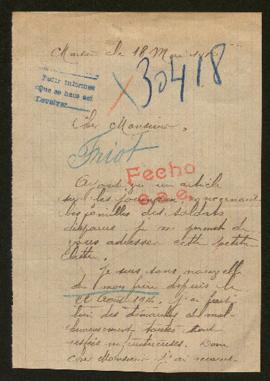 le 18 Mai
30418
Pedir informes
que se hace así
Cher Monsieur,
Friot
Fecho
Ayant lu un article
sur les journaux
les familles des soldats
disparus, je me permet de
vous adresser cette petite
lettre.
Je suis sans nouvelle
de mon frère depuis le
22 Août 1914. J'ai fait
bien des demandes et mal-
heureusement toutes sont
restées infructueuses. Donc
cher Monsieur j'ai recours